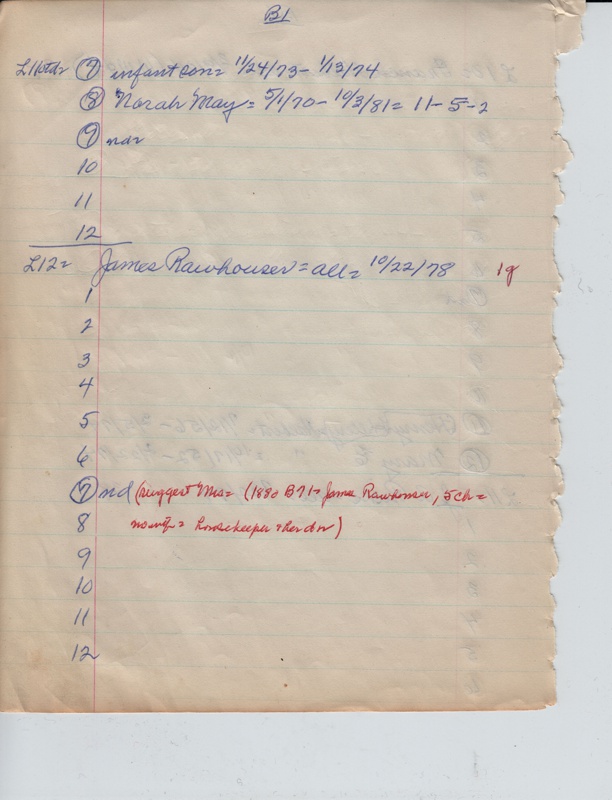 B1
L11 ctd= 7 infant son= 11/24/73- 1/13/74
8 Norah May= 5/1/70- 10/3/81= 11-5-2
9 nd=
10
11
12
L12= James Rawhouser= all= 10/22/78 1g
1
2
3
4
5
6
7 nd (suggest Mrs= (1880 B71= James Rawhouser, 5 ch=
8 no wife= housekeeper & her da)
9
10
11
12